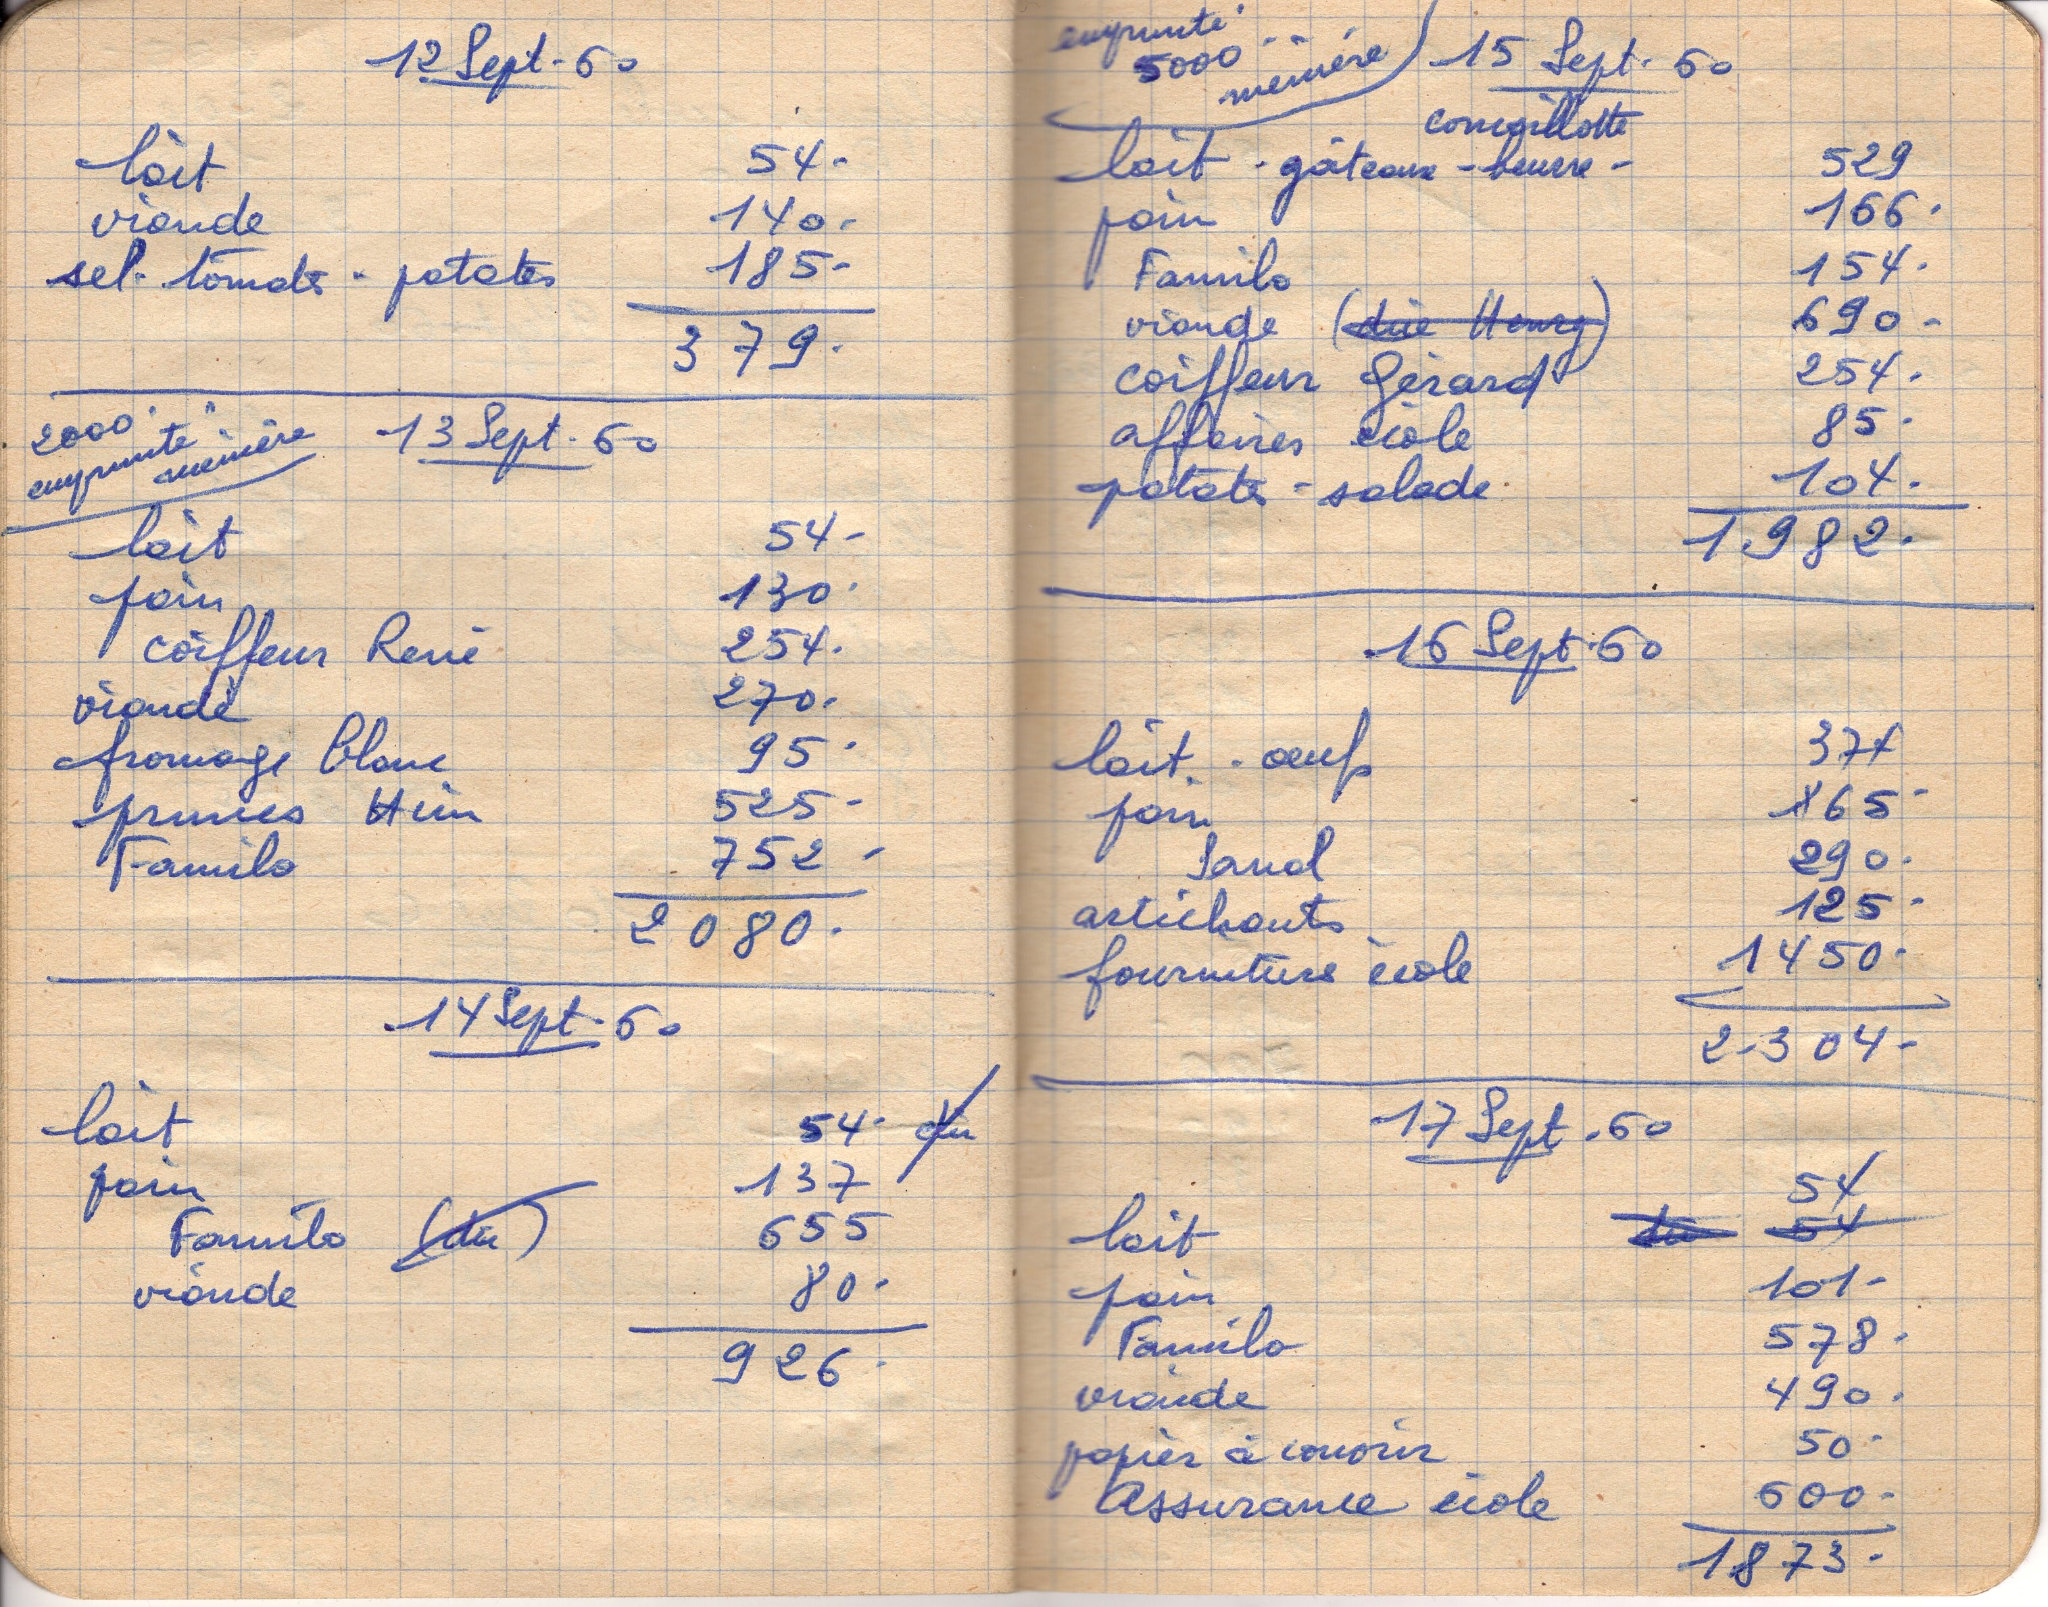 12 Sept. 60
lait 54.
viande 140.
sel. tomates - patates 185.
379.
2000
emprunté
mémère
13 Sept. 60
lait 54.
pain 130.
coiffeur René 254.
viande 270.
fromage blanc 95.
prunes 525.
Familo 752.
2080.
14 Sept. 60
lait 54. dû
pain 137
Familo (dû) 655
viande 80.
926.
emprunté
5000
mémère
15 Sept. 60
concoillotte
lait - gâteaux - beurre - 529
pain 166.
Familo 154.
viande (due Henry) 690.
coiffeur Gérard 254.
affaires école 85.
patates - salade 104.
1.982.
16 Sept. 60
lait - oeufs 374
pain 65.
290.
artichauts 125.
fourniture école 1450.
2.304.
17 Sept. 60
54
lait dû 54
pain 101.
Familo 578.
viande 490.
papier à couvrir 50.
Assurance école 600.
1873.